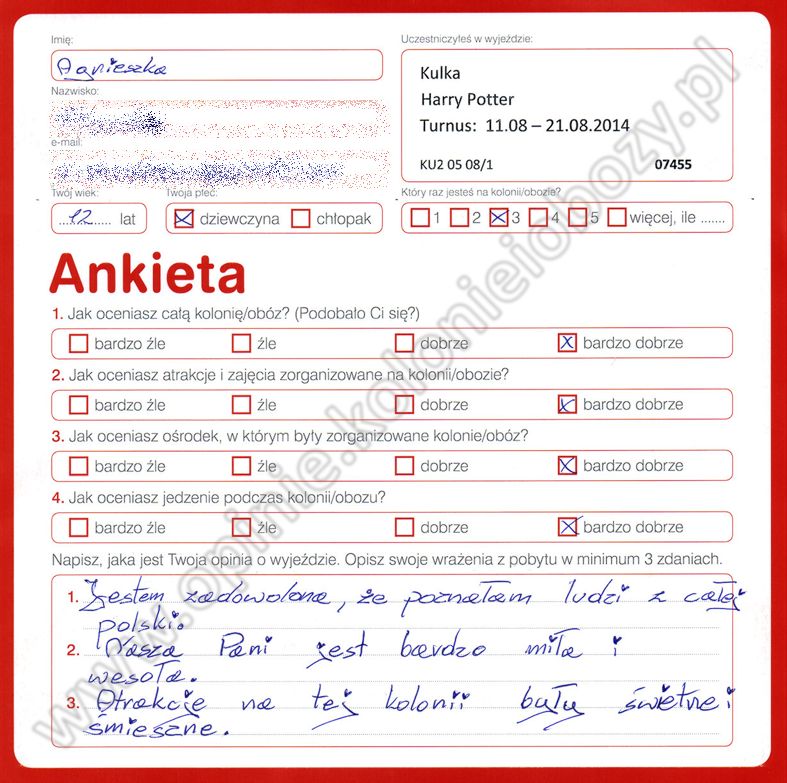 Imię:
Agnieszka
Uczestniczyłeś w wyjeździe:
Kulka
Harry Potter
Turnus: 11.08 – 21.08.2014
KU2 05 08/1 07455
Nazwisko:
e-mail:
Twój wiek:
...12..... lat
Twoja płeć:
dziewczyna chłopak
Który raz jesteś na kolonii/obozie?
1 2 3 4 5 więcej, ile .......
Ankieta
1. Jak oceniasz całą kolonię/obóz? (Podobało Ci się?)
bardzo źle źle dobrze bardzo dobrze
2. Jak oceniasz atrakcje i zajęcia zorganizowane na kolonii/obozie?
bardzo źle źle dobrze bardzo dobrze
3. Jak oceniasz ośrodek, w którym były zorganizowane kolonie/obóz?
bardzo źle źle dobrze bardzo dobrze
4. Jak oceniasz jedzenie podczas kolonii/obozu?
bardzo źle źle dobrze bardzo dobrze
Napisz, jaka jest Twoja opinia o wyjeździe. Opisz swoje wrażenia z pobytu w minimum 3 zdaniach.
1. Jestem zadowolona, że poznałam ludzi z całej
polski.
2. Nasza Pani jest bardzo miła i
wesoła.
3. Atrakcje na tej kolonii były świetne i
śmieszne.
www.opinie.kolonieiobozy.pl